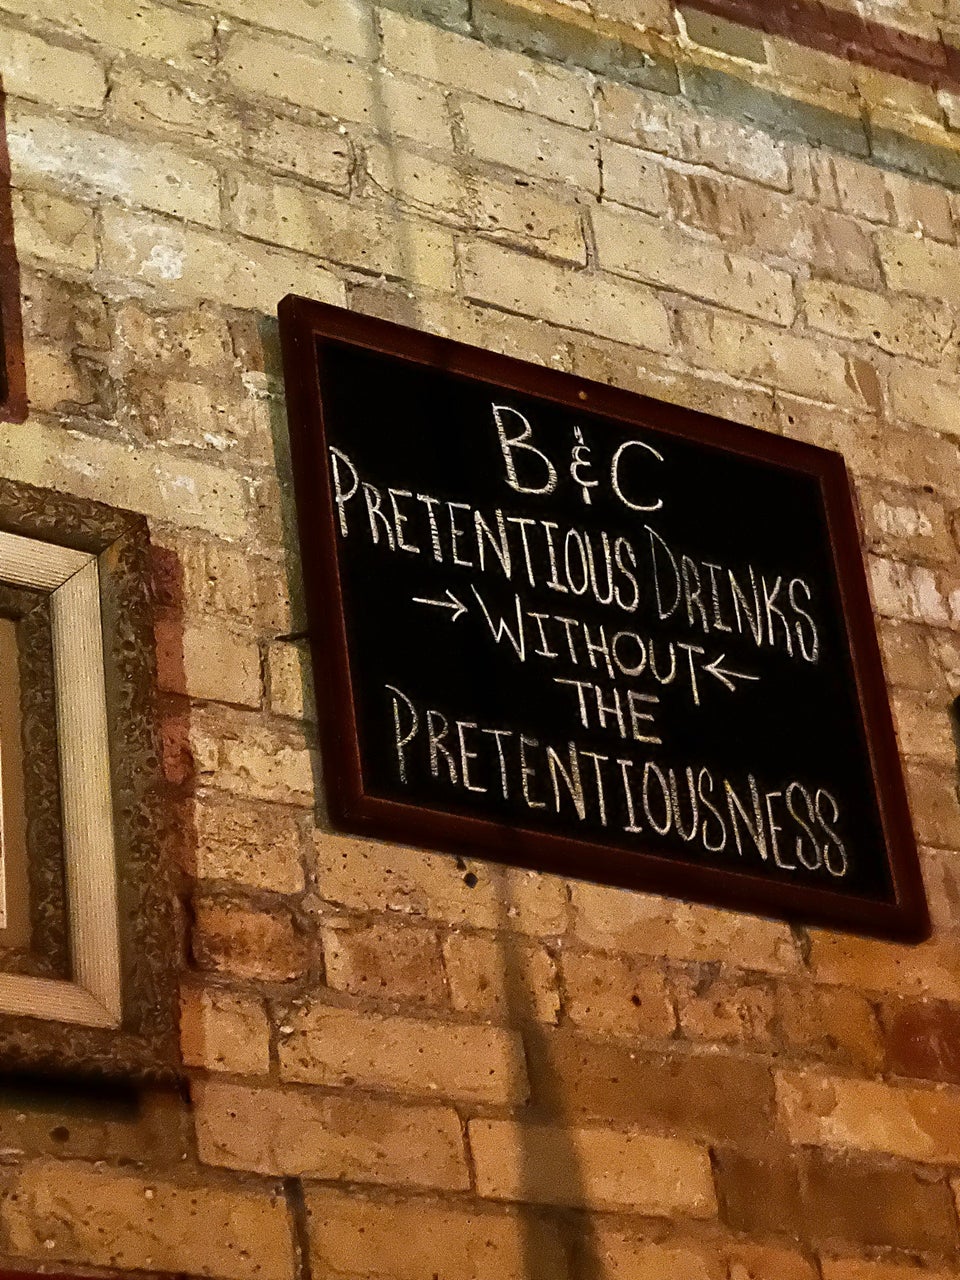 B & C
PRETENTIOUS DRINKS
→ WITHOUT ←
THE
PRETENTIOUSNESS